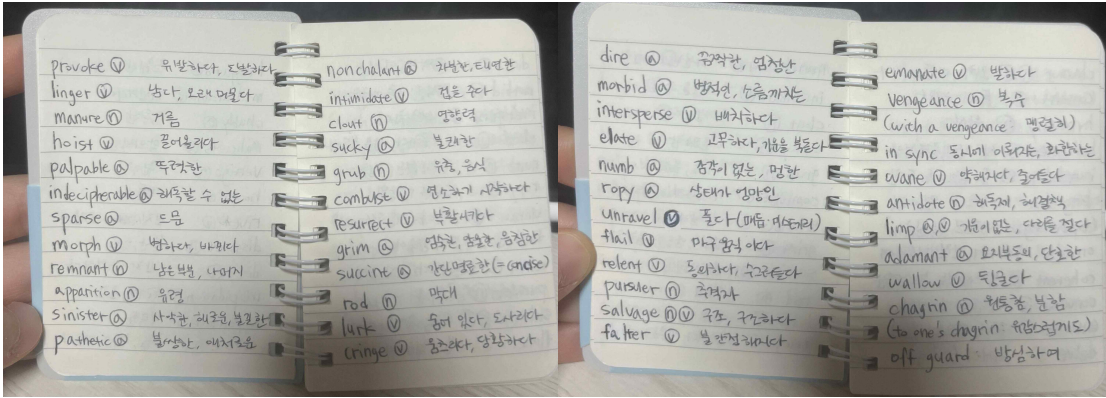 provoke ⓥ 유발하다, 도발하다
linger ⓥ 남다, 오래 머물다
manure ⓝ 거름
hoist ⓥ 끌어올리다
palpable ⓐ 뚜렷한
indecipherable ⓐ 해독할 수 없는
sparse ⓐ 드문
morph ⓥ 변하다, 바뀌다
remnant ⓝ 남은 부분, 나머지
apparition ⓝ 유령
sinister ⓐ 사악한, 해로운, 불길한
pathetic ⓐ 불쌍한, 애처로운
nonchalant ⓐ 차분한, 태연한
intimidate ⓥ 겁을 주다
clout ⓝ 영향력
sucky ⓐ 불쾌한
grub ⓝ 유충, 음식
combust ⓥ 연소하기 시작하다
resurrect ⓥ 부활시키다
grim ⓐ 엄숙한, 암울한, 음침한
succint ⓐ 간단명료한 (=concise)
rod ⓝ 막대
lurk ⓥ 숨어 있다, 도사리다
cringe ⓥ 움츠리다, 당황하다
dire ⓐ 끔찍한, 엄청난
morbid ⓐ 병적인, 소름끼치는
intersperse ⓥ 배치하다
elate ⓥ 고무하다, 기운을 북돋다
numb ⓐ 감각이 없는, 멍한
ropy ⓐ 상태가 엉망인
unravel ⓥ 풀다 (매듭, 미스터리)
flail ⓥ 마구 움직이다
relent ⓥ 동의하다, 수그러들다
pursuer ⓝ 추격자
salvage ⓝ ⓥ 구조, 구조하다
falter ⓥ 불안정해지다
emanate ⓥ 발하다
vengeance ⓝ 복수
(with a vengeance 맹렬히)
in sync 동시에 이뤄지는, 화합하는
wane ⓥ 약해지다, 줄어들다
antidote ⓝ 해독제, 해결책
limp ⓐ, ⓥ 기운이 없는, 다리를 절다
adamant ⓐ 요지부동의, 단호한
wallow ⓥ 뒹굴다
chagrin ⓝ 원통함, 분함
(to one's chagrin 유감스럽게도)
off guard 방심하여